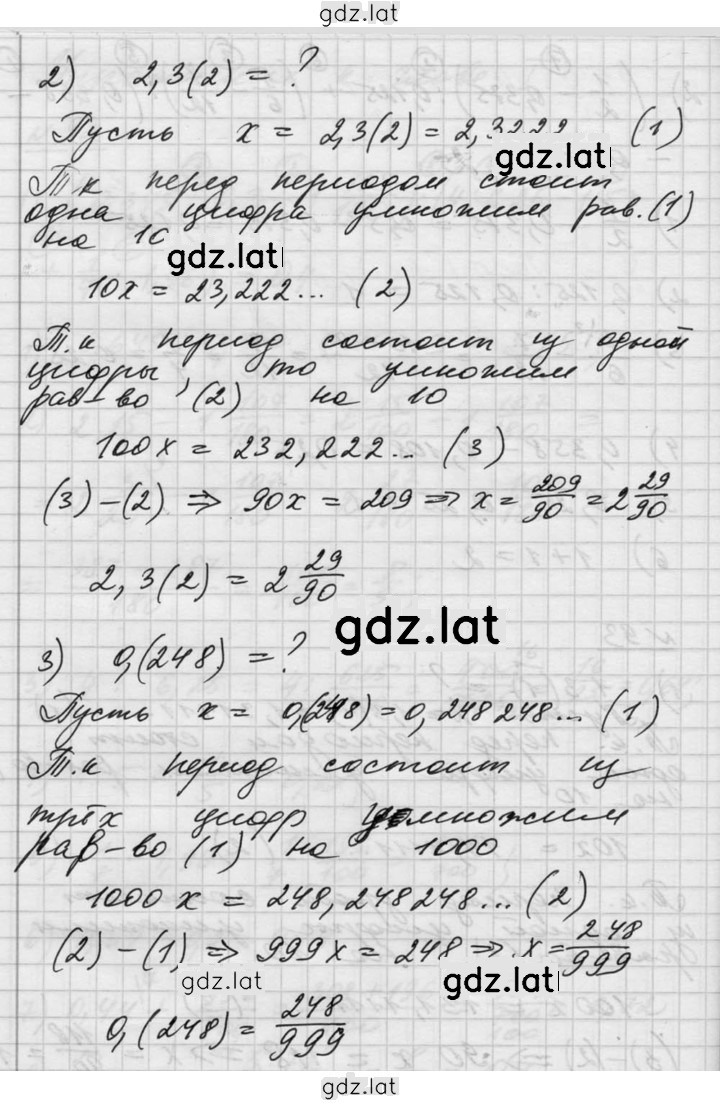 gdz.lat
2) 2,3(2) = ?
Пусть x = 2,3(2) = 2,3222 (1)
gdz.lat
Т к перед периодом стоит
одна цифра умножим рав. (1)
на 10
gdz.lat
10x = 23,222... (2)
Т.к период состоит из одной
цифры, то умножим
рав-во (2) на 10
100x = 232,222... (3)
(3)-(2) ⇒ 90x = 209 ⇒ x = 209/90 = 2 29/90
2,3(2) = 2 29/90
gdz.lat
3) 0,(248) = ?
Пусть x = 0,(248) = 0,248248... (1)
Т.к период состоит из
трёх цифр умножим
рав-во (1) на 1000
1000x = 248,248248... (2)
(2)-(1) ⇒ 999x = 248 ⇒ x = 248/999
gdz.lat
gdz.lat
0,(248) = 248/999
gdz.lat